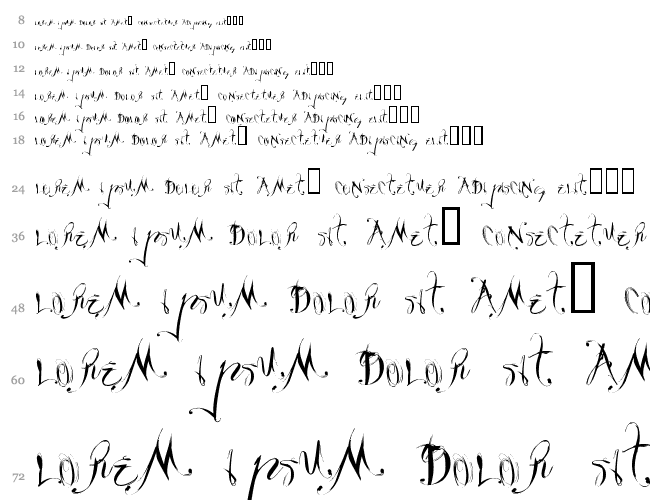 8 Lorem ipsum Dolor sit Amet▯ consectetuer Adipiscing elit▯▯▯
10 Lorem ipsum Dolor sit Amet▯ consectetuer Adipiscing elit▯▯▯
12 Lorem ipsum Dolor sit Amet▯ consectetuer Adipiscing elit▯▯▯
14 Lorem ipsum Dolor sit Amet▯ consectetuer Adipiscing elit▯▯▯
16 Lorem ipsum Dolor sit Amet▯ consectetuer Adipiscing elit▯▯▯
18 Lorem ipsum Dolor sit Amet▯ consectetuer Adipiscing elit▯▯▯
24 Lorem ipsum Dolor sit Amet▯ consectetuer Adipiscing elit▯▯▯
36 Lorem ipsum Dolor sit Amet▯ consectetuer
48 Lorem ipsum Dolor sit Amet▯ co
60 Lorem ipsum Dolor sit Am
72 Lorem ipsum Dolor sit